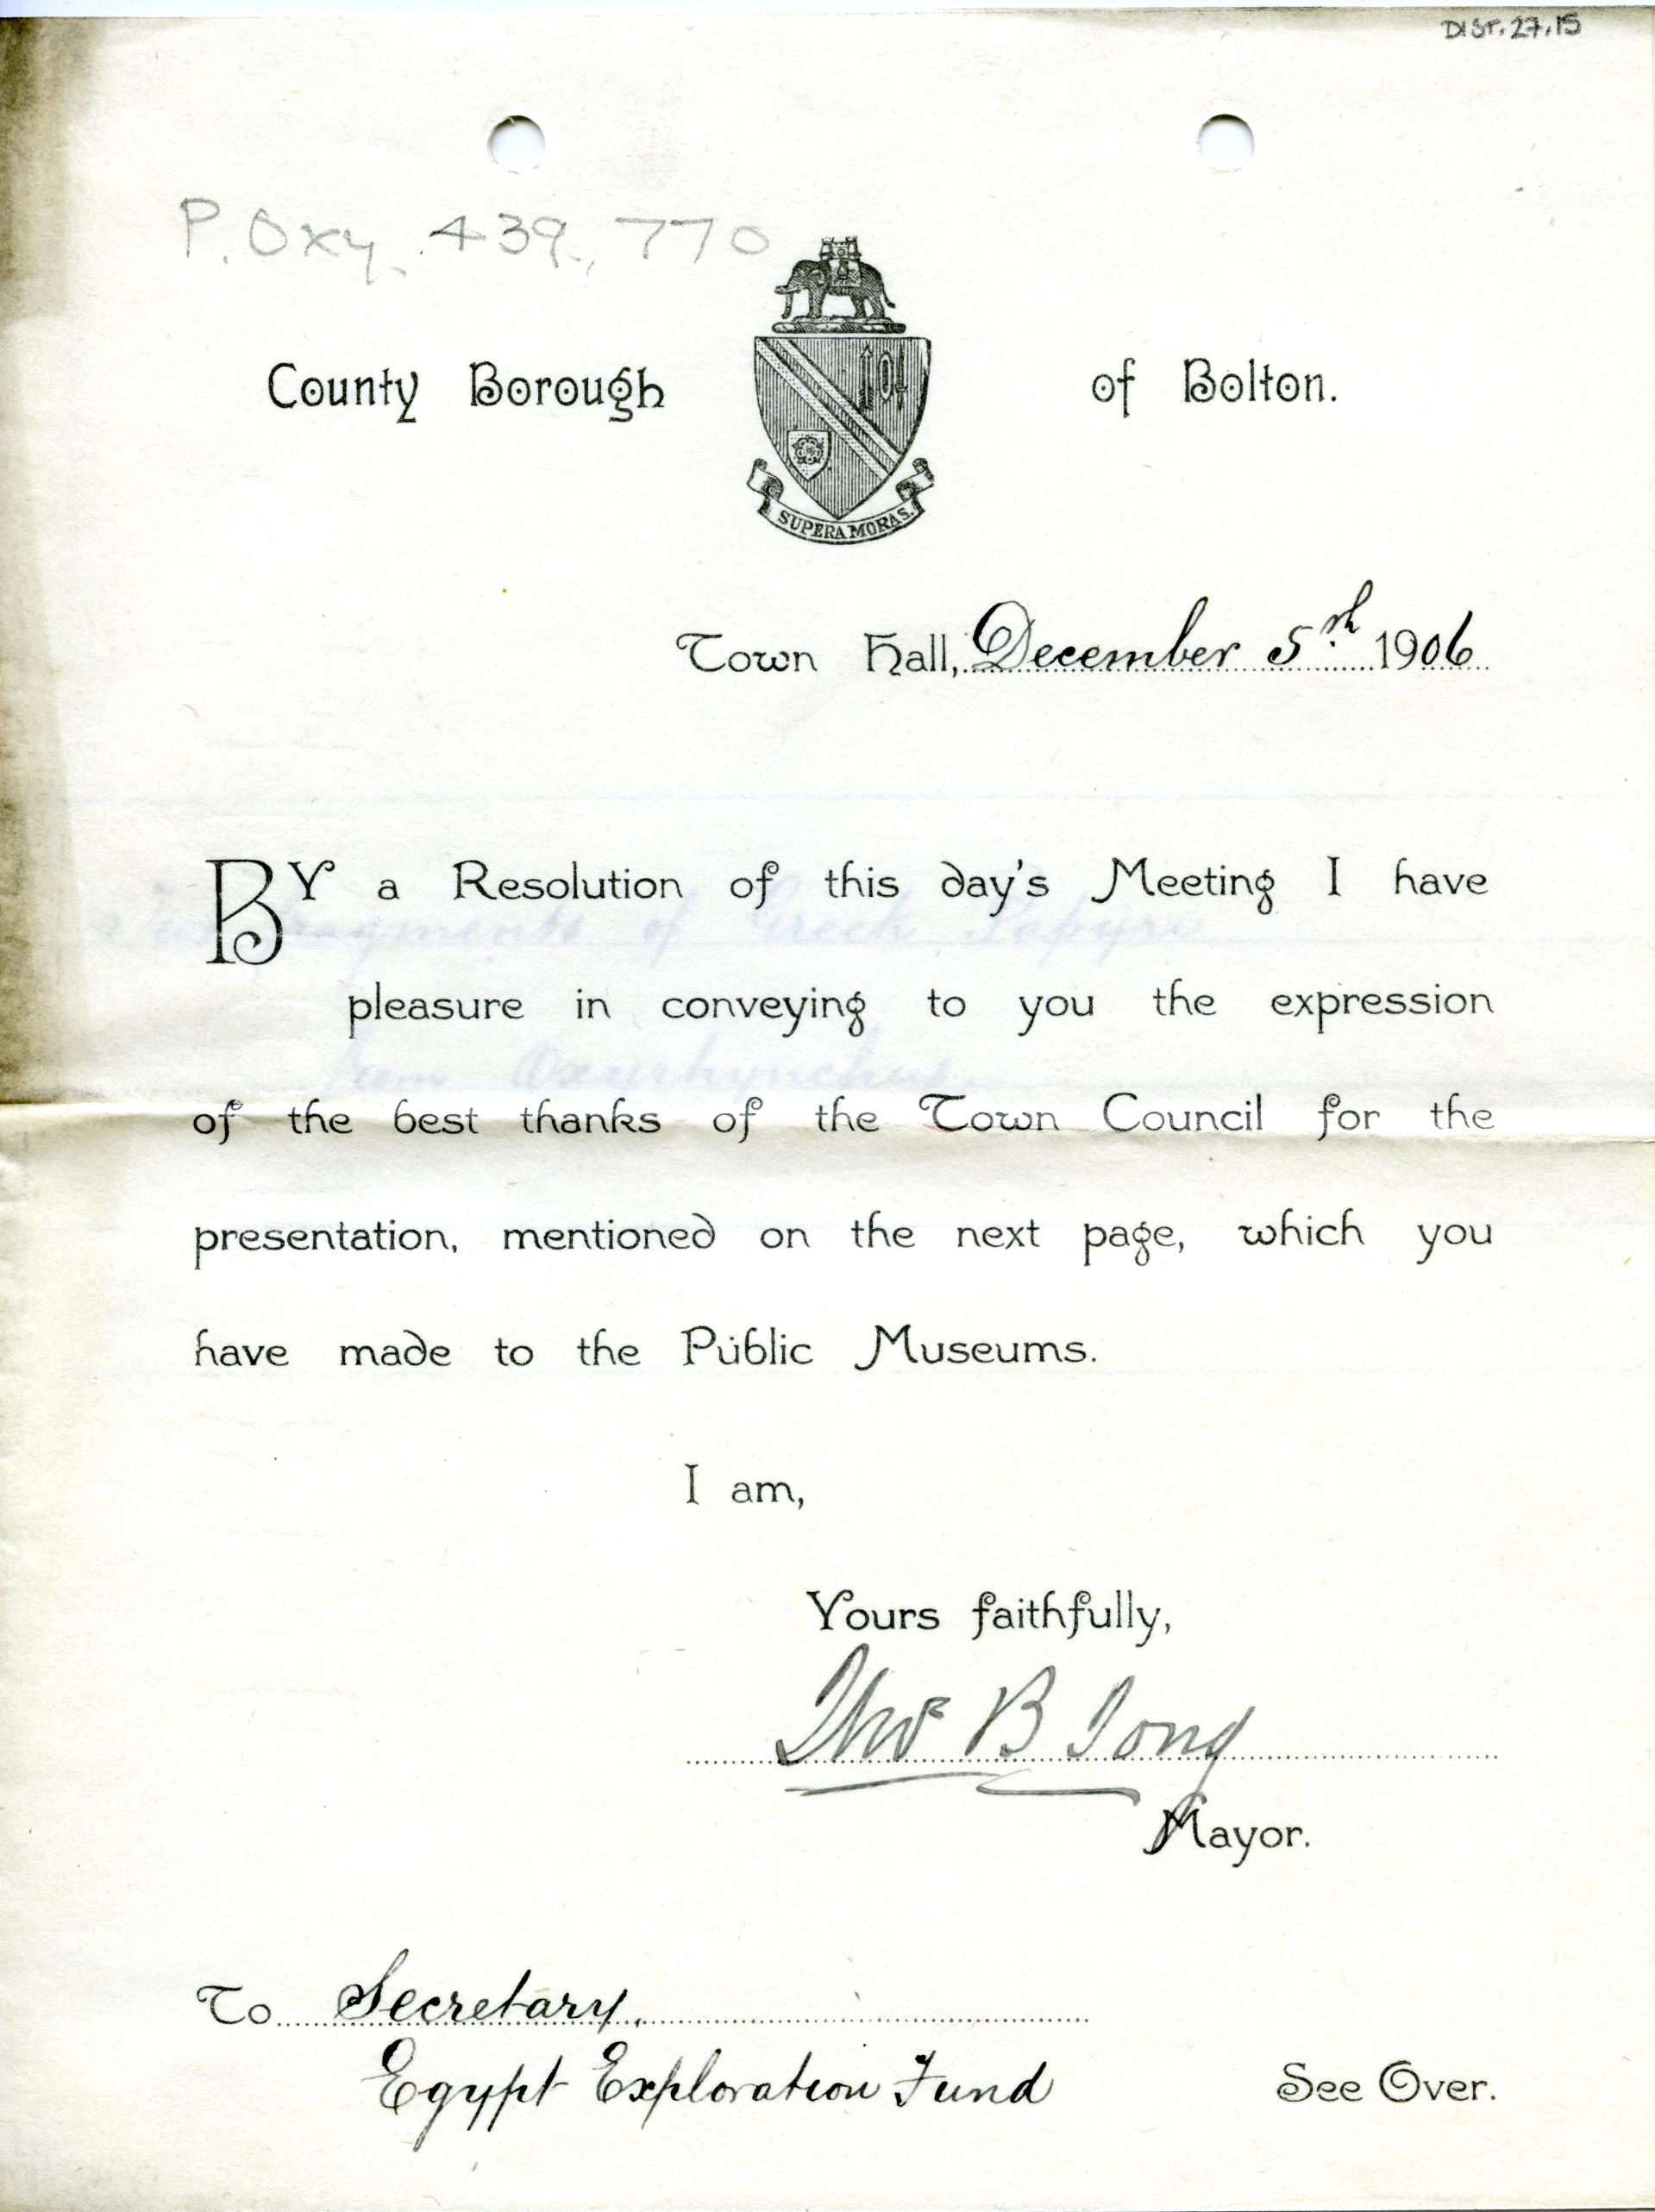 DIST. 27.15
P. Oxy. 439, 770
County Borough of Bolton.
SUPERA MORAS.
Town Hall, December 5th 1906
BY a Resolution of this day's Meeting I have
fragments of Greek Papyri
pleasure in conveying to you the expression
from Oxyrhynchus.
of the best thanks of the Town Council for the
presentation, mentioned on the next page, which you
have made to the Public Museums.
I am,
Yours faithfully,
Thos B Tong
Mayor.
To Secretary,
Egypt Exploration Fund
See Over.